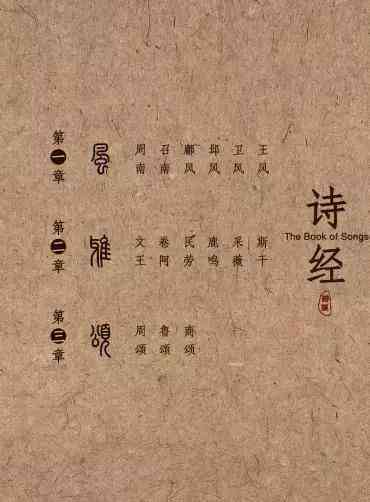 诗经
The Book of Songs
第一章
風
周南
召南
鄘风
邶风
卫风
王风
第二章
雅
文王
卷阿
民劳
鹿鸣
采薇
斯干
第三章
頌
周颂
鲁颂
商颂